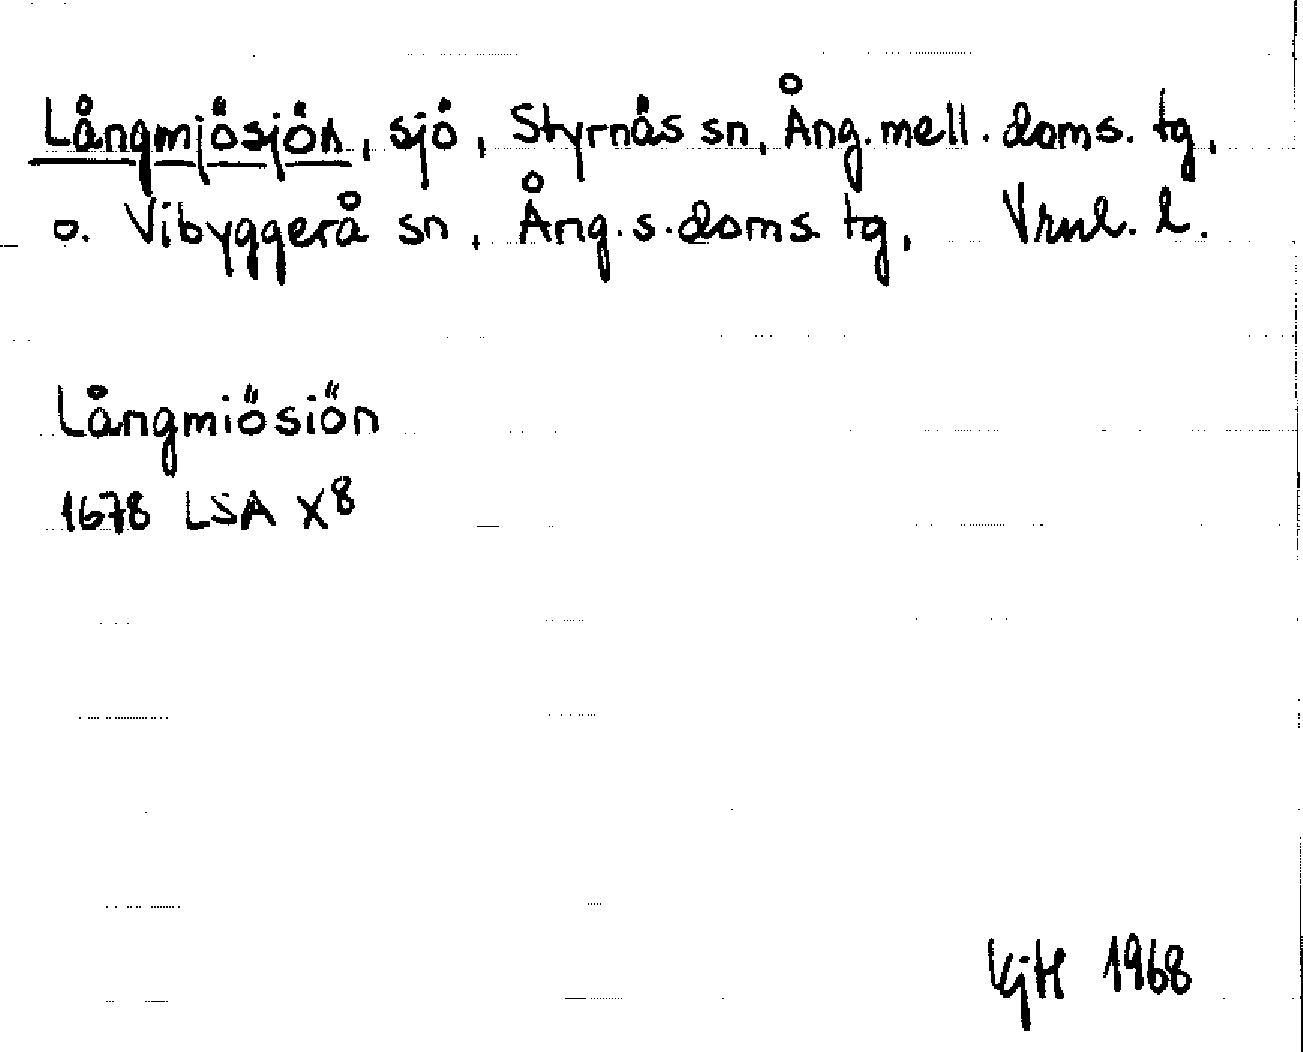 Långmjösjön, sjö, Styrnäs sn, Ång. mell. doms. tg,
o. Vibyggerå sn, Ång. s. doms. tg, Vrnl. l.
Långmiösiön
1678 LSA X8
KjH 1968